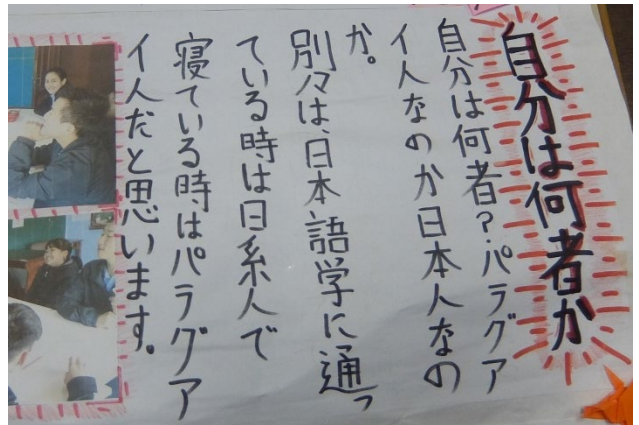 自分は何者か
自分は何者？パラグア
イ人なのか日本人なの
か。
別々は、日本語学に通っ
ている時は日系人で
寝ている時はパラグア
イ人だと思います。